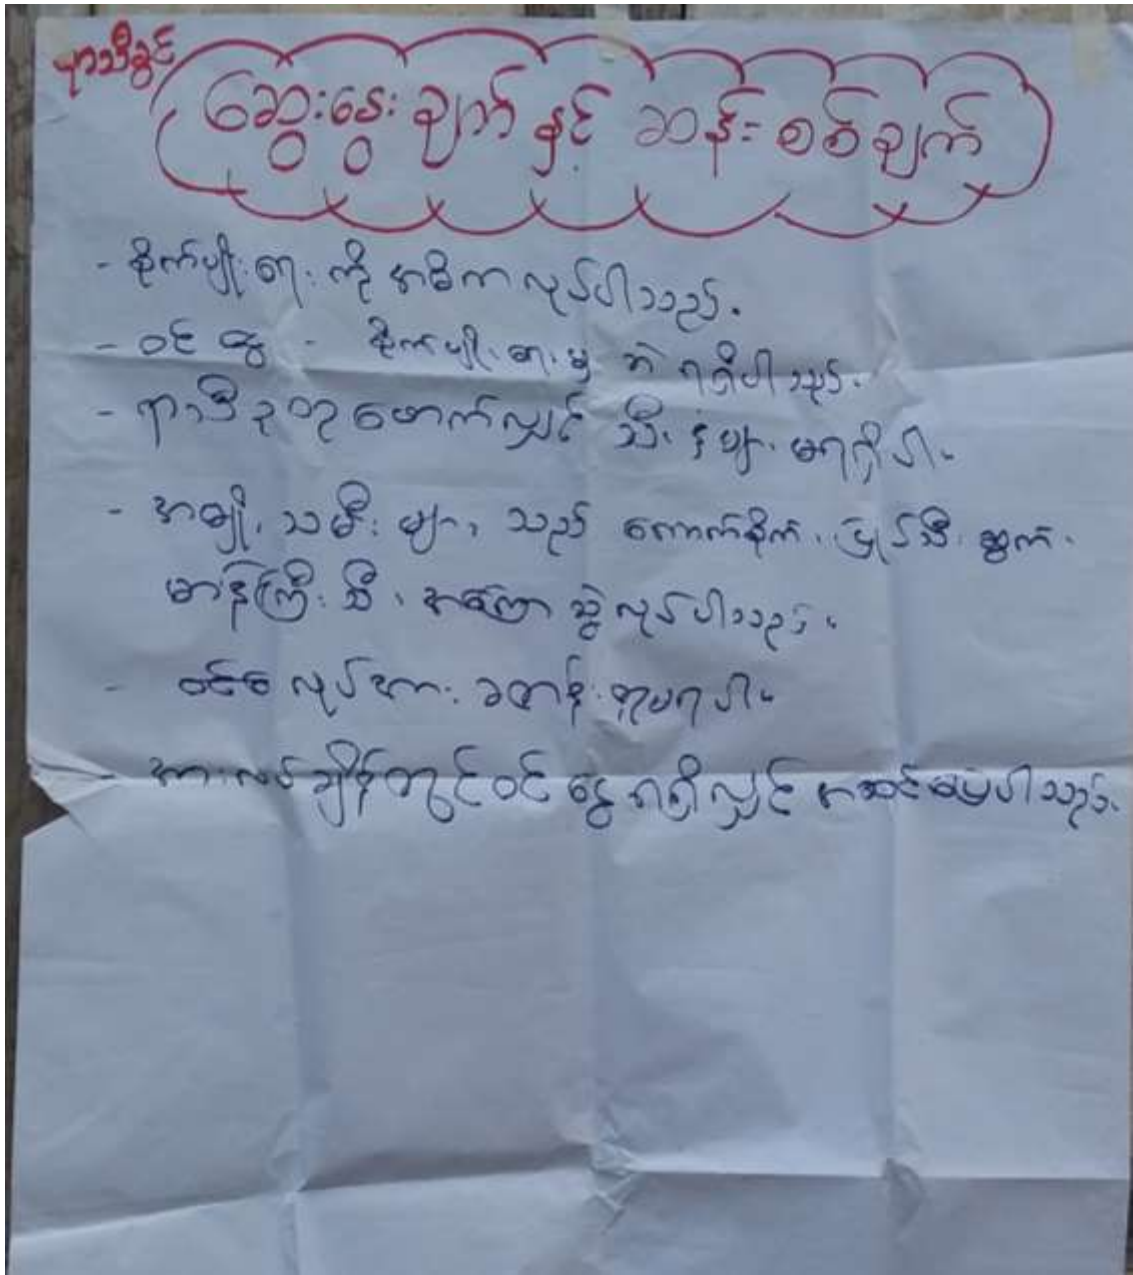 ရာသီခွင်
ဆွေးနွေးချက် နှင့် ဆန်းစစ်ချက်
- စိုက်ပျိုးရေး ကို အဓိက လုပ်ပါသည်။
- ဝင်ငွေ - စိုက်ပျိုးရေးမှ ဘဲ ရရှိပါသည်။
- ရာသီဥတု ဖောက်လျှင် သီးနှံများ မရရှိပါ။
- အမျိုးသမီးများ သည် ကောက်စိုက်၊ ပြုပ်သီးဆွတ်၊
မာန်ကြီးသီး အကြော်ဆွဲ လုပ်ပါသည်။
- လုပ်အား ခတန်းတူမရပါ။
- အားလပ်ချိန်တွင် ဝင်ငွေ ရရှိလျှင် အဆင်ပြေပါသည်။